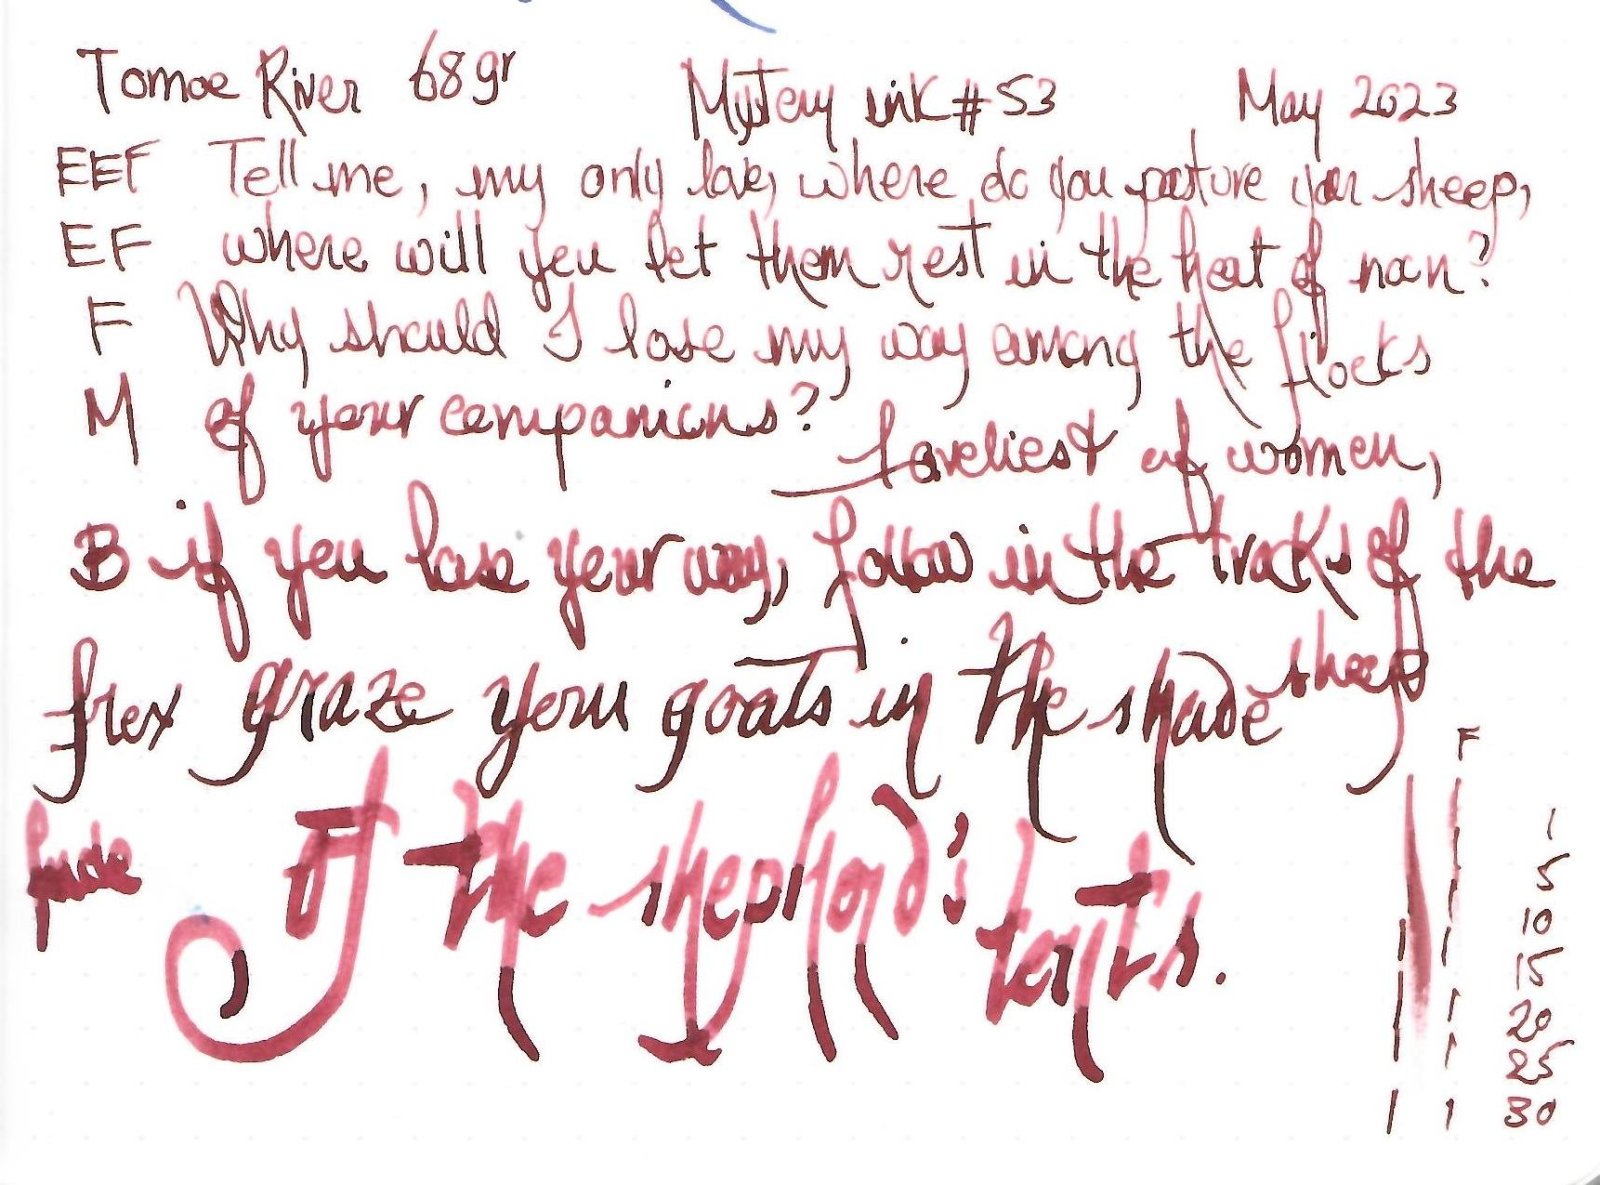 Tomoe River 68gr Mystery ink #53 May 2023
EEF Tell me, my only love, where do you pasture your sheep,
EF where will you let them rest in the heat of noon?
F Why should I lose my way among the flocks
M of your companions? Loveliest of women,
B if you lose your way, follow in the tracks of the
sheep
flex graze your goats in the shade
fude of the shepherd's tents.
F
1
5
10
15
20
25
30